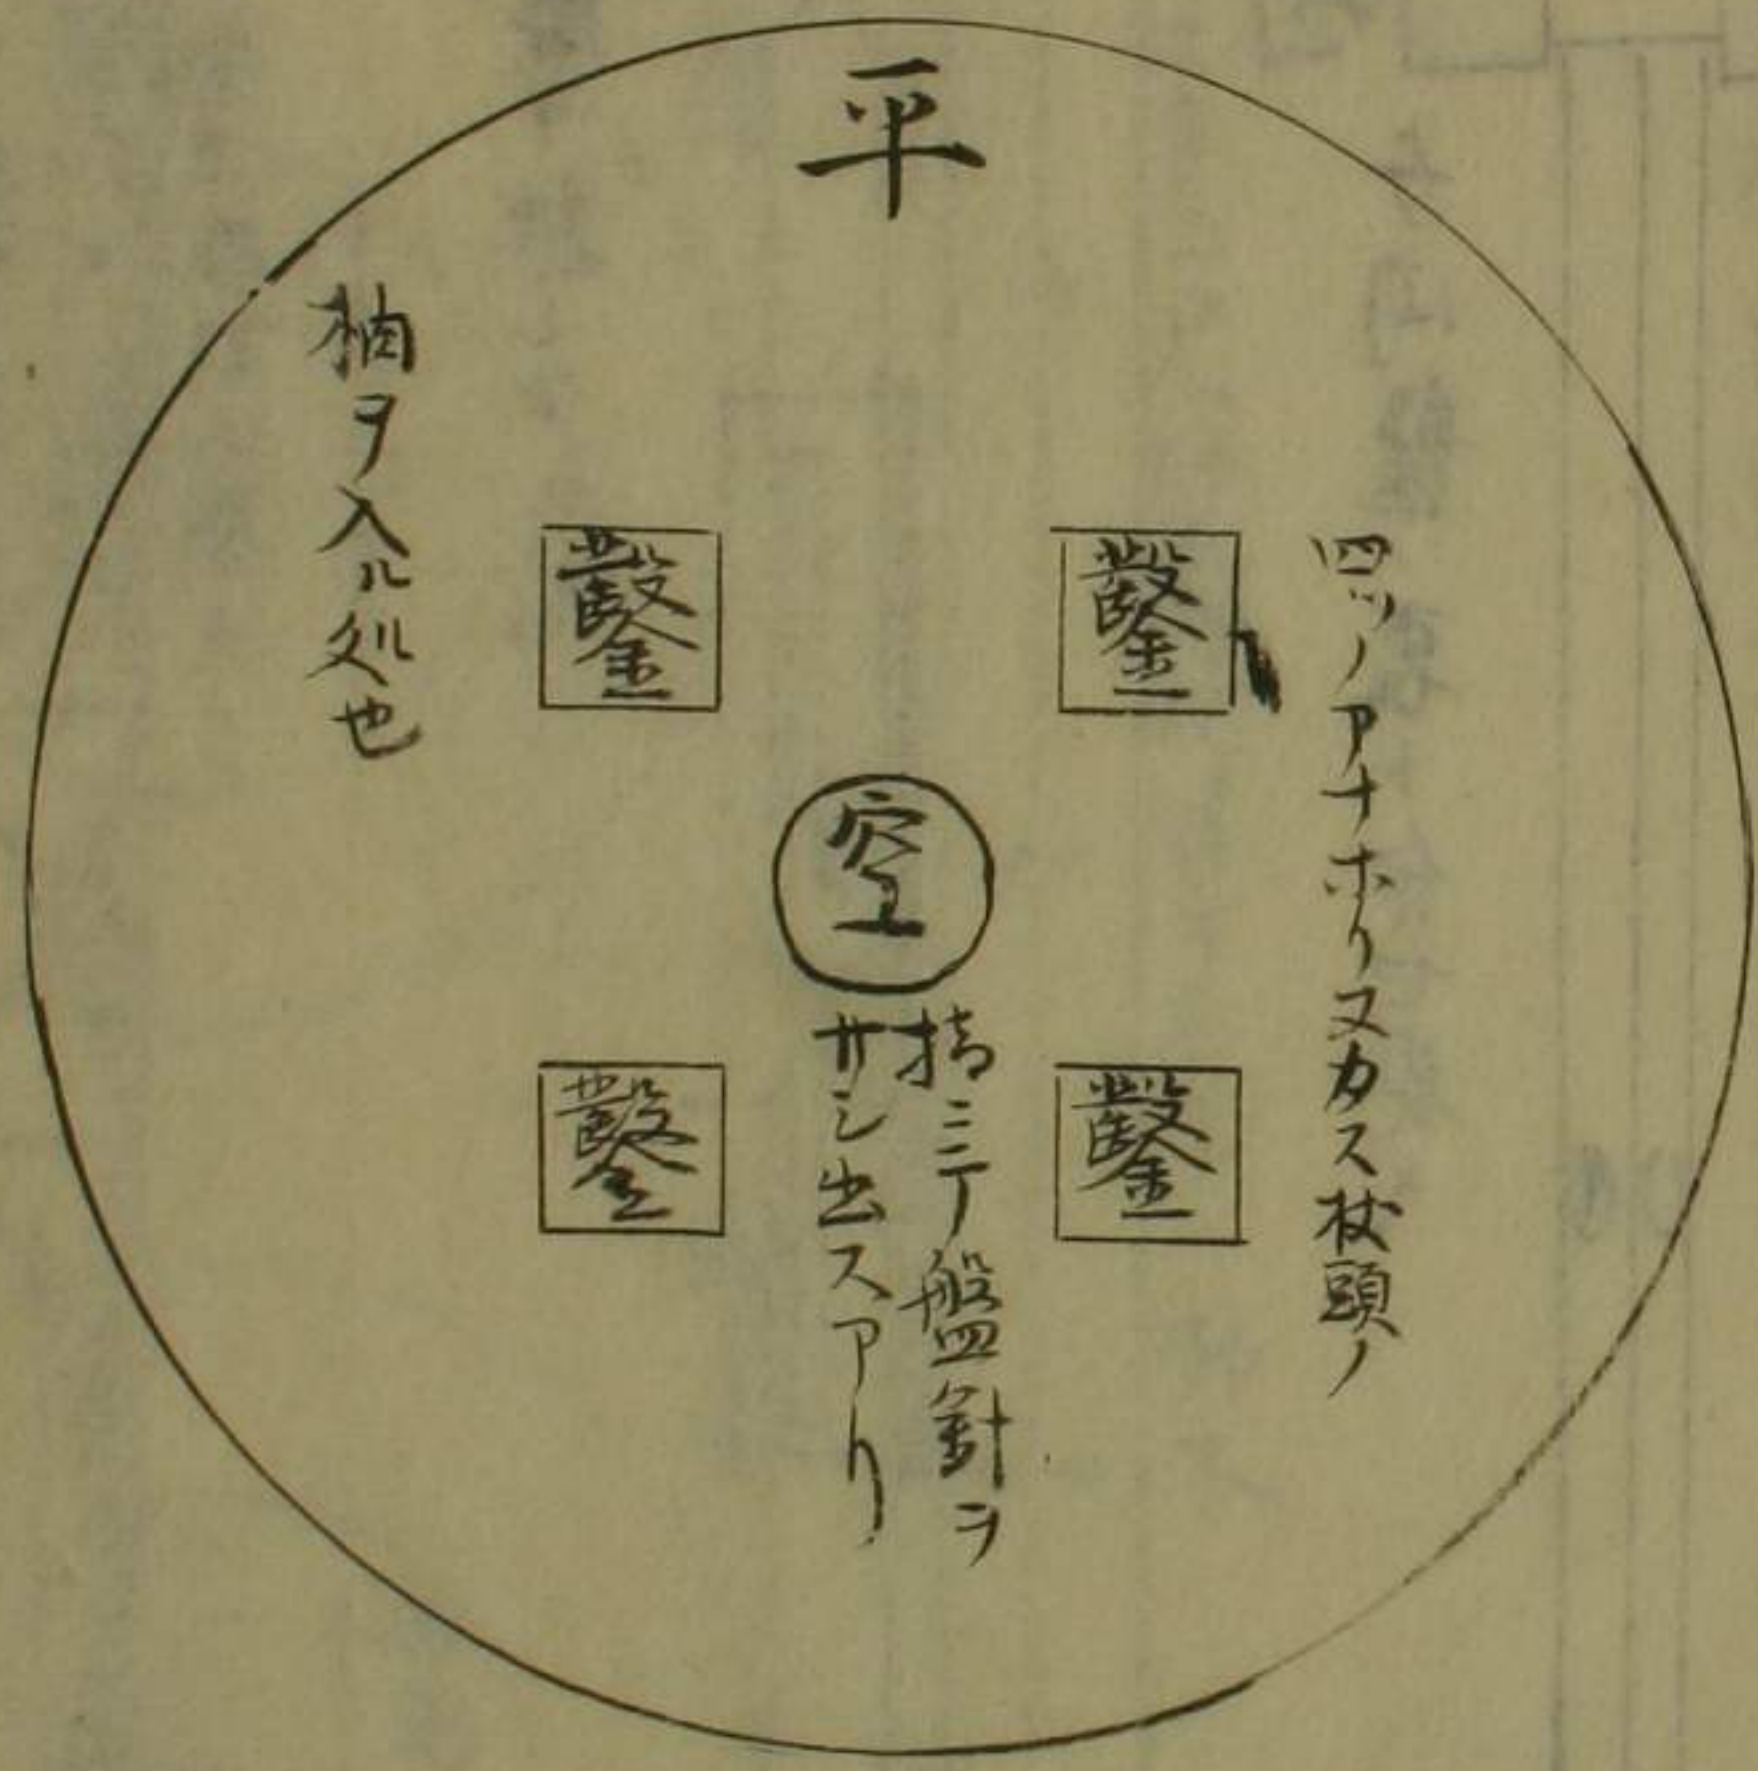 平
四ツノアナホリヌカス杖頭ノ
鑿
鑿
空
指ニテ盤針ヲ
サシ出スアリ
鑿
鑿
枘ヲ入ル処也